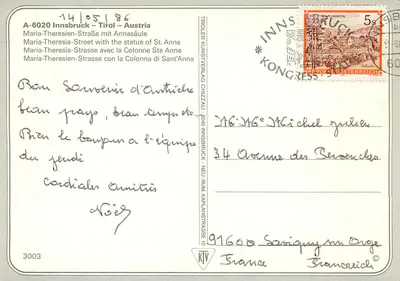 14/05/86
A-6020 Innsbruck – Tirol – Austria
Maria-Theresien-Straße mit Annasäule
Maria-Theresien-Street with the statue of St. Anne
Maria-Theresien-Strasse avec la Colonne Ste Anne
Maria-Theresien-Strasse con la Colonna di Sant'Anna
Bon Souvenir d'Autriche
beau pays, beau temps etc
Bien le bonjour à l'équipe
du jeudi
Cordiales amitiés
Noël
3003
TIROLER KUNSTVERLAG CHIZZALI
INNSBRUCK - NEU-RUM, KAPLANSTRASSE 10
KTV
INNSBRUCK
KONGRESS
5 S
REPUBLIK ÖSTERREICH
Michel Julien
34 Avenue des
91600 Savigny sur Orge
France Frankreich